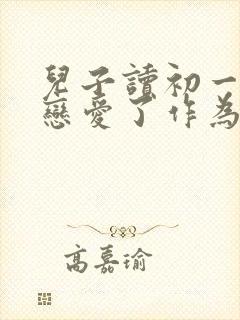 兒子讀初一
戀愛了作為
高嘉瑜